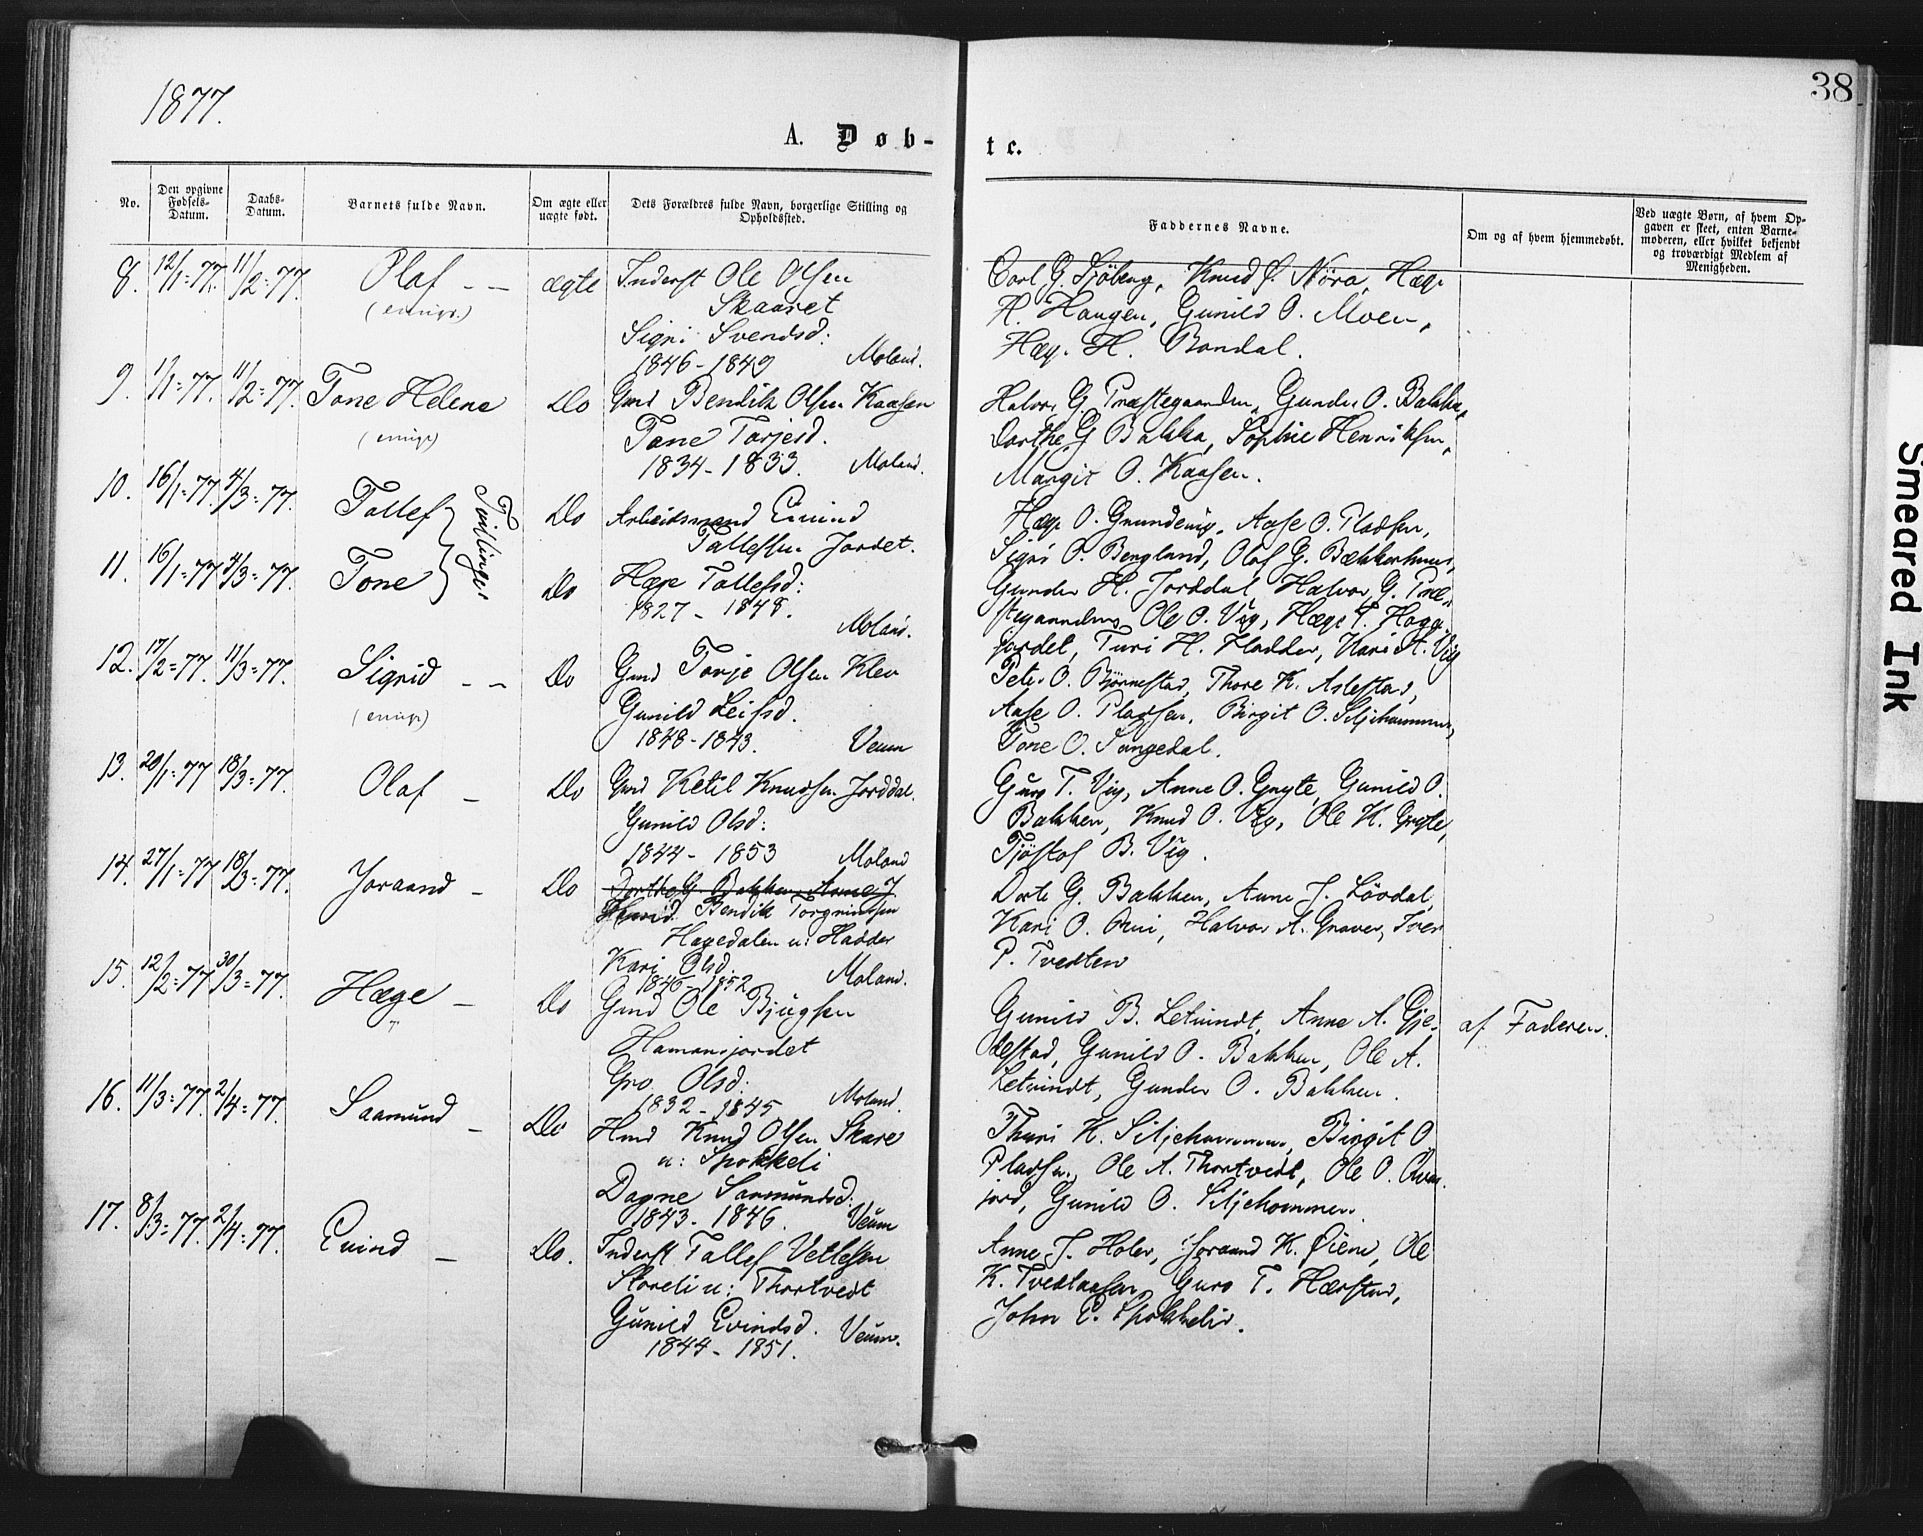 1877.
38
A. Døb-
te.
No.
Den opgivne Fødsels-Datum.
Daabs-Datum.
Barnets fulde Navn.
Om ægte eller uægte født.
Dets Forældres fulde Navn, borgerlige Stilling og Opholdssted.
Faddernes Navne.
Om og af hvem hjemmedøbt.
Ved uægte Børn, af hvem Opgaven er skeet, enten Barnemoderen, eller hvilket bekjendt og troværdigt Medlem af Menigheden.
8. 12/1=77. 11/2=77. Olaf - - ægte Inderst Ole Olsen
(emigr.) Skaaret
Sigri Svendsd:
1846-1849 Moland.
Carl G. Sjöberg, Knud Nöra, Hæge
H. Haugen, Gunild O. Moen,
Hæg. H. Bondal.
9. 1/1=77. 11/2=77. Tone Helene Do Gmd Bendik Olsen Kaasen
(emigr) Tone Tarjesd.
1834-1833. Moland.
Halvor G. Præstegaarden, Gunder O. Bakka,
Dorthe G Bakka, Sophie Henriksen,
Margit O. Kaasen.
10. 16/1=77. 4/3=77. Tallef Do Arbeidsmand Eivind
Tvillinger
Tallefsen Jordet.
11. 16/1=77 4/3=77. Tone Do Hæge Tallefsd:
1827-1848. Moland.
Hæge O. Grundevig, Aase O. Pladsen,
Sigri O. Bergland, Olaf G. Bækkerhuus,
Gunder H. Jorddal Halvor G. Præ-
stegaarden, Ole O. Vig, Hæge T. Hage
jordet, Turi H. Hadder, Kari A. Vig
12. 17/2=77. 11/3=77. Sigrid - - Do Gmd Torje Olsen Klev
(emigr) Gunild Leifsd.
1848-1843. Veum
Peter O. Björnestad, Thore K. Aslestad,
Aase O. Pladsen, Birgit O. Siljehommen,
Tone O. Songedal.
13. 20/1=77 18/3=77. Olaf - Do Gmd Ketil Knudsen Jorddal.
Gunild Olsd:
1844-1853 Moland
Guro T. Vig, Anne O. Gryte, Gunild O.
Bakken, Knud O. Vig, Ole K. Gryte,
Tjöstof B. Vig.
14. 27/1=77 18/3=77. Joraand - Do Dorthe G. Bakken, Anne J
Bendik Torgrimsen
Hagedalen u: Hadder
Kari Olsd.
1846-1852 Moland.
Dorte G. Bakken, Anne J. Lövdal,
Kari O. Omi, Halvor A. Graver, Iver
P. Tvedten
15. 12/2=77 30/3=77. Hæge - Do Gmd Ole Bjugsen
Hamansjordet
Gro Olsd:
1832-1845 Moland.
Gunild B. Letvindt, Anne A. Gje-
destad, Gunild O. Bakken, Ole A.
Letvindt, Gunder O. Bakken.
af Faderen.
16. 11/3=77. 2/4=77. Saamund - Do Hmd Knud Olsen Skare
u: Spokkeli
Dagne Saamundsd:
1843-1846. Veum
Thuri K. Siljehommen, Birgit O
Pladsen, Ole A. Thortvedt, Ole O.
jord, Gunild O. Siljehommen.
17. 8/3=77. 2/4=77. Evind - Do. Inderst Tallef Vetlesen
Storeli u: Thortvedt
Gunild Evindsd. Veum.
1844-1851.
Anne J. Holer, Joraand K. Öiene, Ole
K. Tvedtaasen, Guro T. Hærstad,
John E. Spokkelid.
Smeared Ink